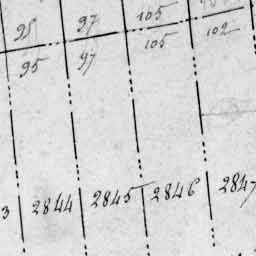 95 97 105
95 97 105 102
3 2844 2845 2846 2847